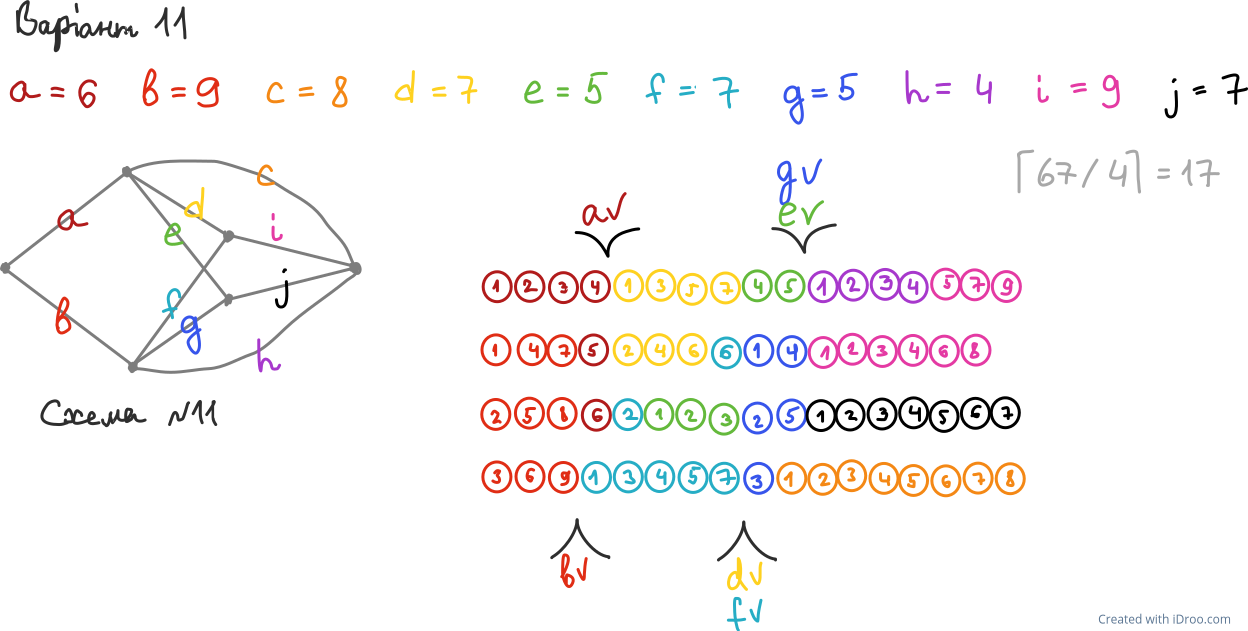 Варіант 11
a = 6 b = 9 c = 8 d = 7 e = 5 f = 7 g = 5 h = 4 i = 9 j = 7
⌈67/4⌉ = 17
c
d
a
e
i
j
f
b
g
h
Схема №11
av
gv
ev
1 2 3 4 1 3 5 7 4 5 1 2 3 4 5 7 9
1 4 7 5 2 4 6 6 1 4 1 2 3 4 6 8
2 5 8 6 2 1 2 3 2 5 1 2 3 4 5 6 7
3 6 9 1 3 4 5 7 3 1 2 3 4 5 6 7 8
bv
dv
fv
Created with iDroo.com